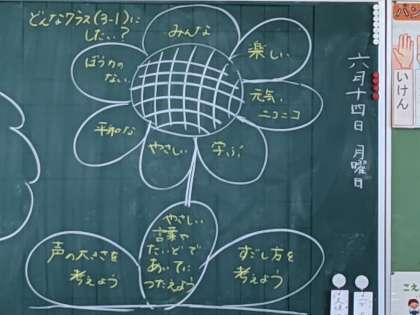 どんなクラス(3-1)に
したい?
みんな
楽しい
ぼう力の
ない
元気
ニコニコ
平和な
やさしい
学ぶ
やさしい
言葉や
たいどで
あいてに
つたえよう
声の大きさを
考えよう
すごし方を
考えよう
六月十四日 月曜日
いけん
こえ